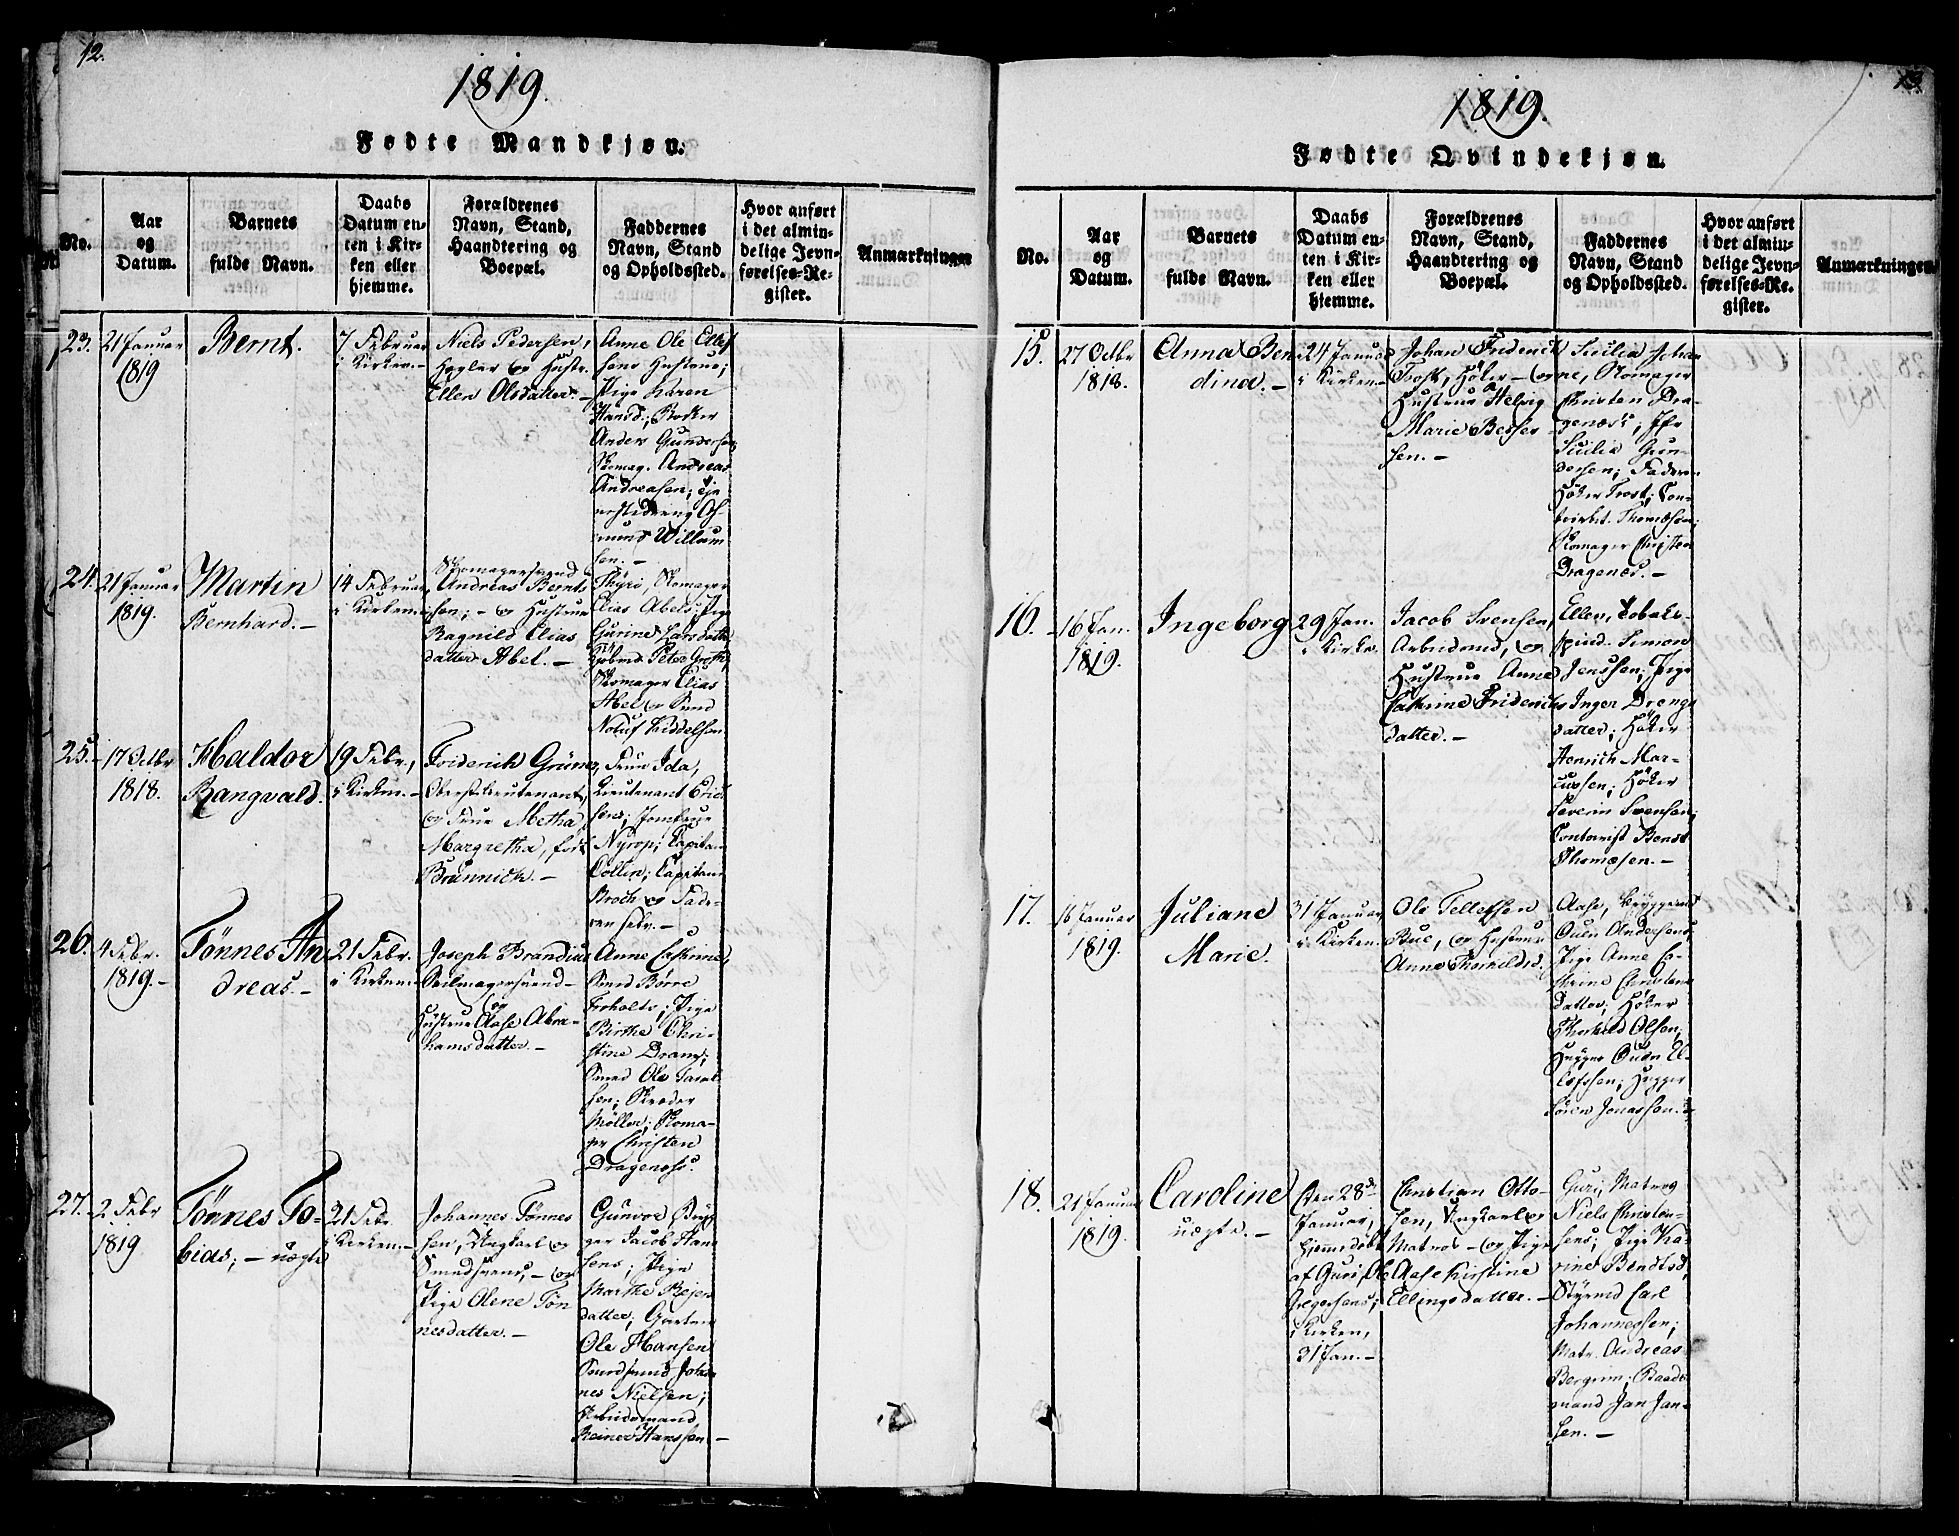 12.
1819.
Fødte Mandkjøn.
No.
Aar
og
Datum.
Barnets
fulde Navn.
Daabs
Datum en-
ten i Kir-
ken eller
hjemme.
Forældrenes
Navn, Stand,
Haandtering og
Boepæl.
Faddernes
Navn, Stand
og Opholdssted.
Hvor anført
i det almin-
delige Jevn-
førelses-Re-
gister.
Anmærkninger
23.
21 Januar
1819
Bernt.
7 Februar
i Kirken.-
Niels Pedersen,
Hegler og Hustr.
Ellen Olsdatter.-
Anne Ole Ellef
sens Hustrue;
Pige Karen
Hansd.;
Anders Gundersen,
Skomag. Andreas
Andreasen;
Willum
sen.-
24.
21 Januar
1819.
Martin
Bernhard.-
14 Februar,
i Kirken
Skomagersvend
Andreas Bernt
sen;- og Hustrue
Ragnild Elias
datter Abel.-
Skomager
Elias Abels; Pige
Gurine Larsdatter
Peter Groth,
Skomager Elias
Abel og Smed
Notuf Kiddelsen
25.-
17 Octbr
1818.
Haldor
Rangvald.
19 Febr.,
i Kirken.-
Friderich Grüner,
Oberstlieutenant,
og Frue Metha
Margretha, født
Brünnich.-
Frue Ida,
Lieutenant Erich
sens; Jomfrue
Nyrop; Capitain
Collin; Capitain
Broch og Fade-
ren selv.-
26.
4 Febr.
1819.-
Tönnes An
dreas.-
21 Febr.
i Kirken
Joseph Brandius
Seilmagersvend-
og
Hustrue Aase Abra-
hamsdatter.-
Anne Cathrine,
Smed Börre
Pige
Birthe Chri-
stine Drang;
Smed Ole
sen; Skreder
Möller; Skoma-
ger Christen
Dragenæss.
27.-
2 Febr
1819
Tönnes To-
bias;- uægte
21 Febr.
i Kirken.-
Johannes Tönnes
sen, Ungkarl og
Smedsvend,- og
Pige Olene Tön
nesdatter.-
Gunvor, Bryg
ger Jacob Han
sens; Pige
Marthe Rejer
datter; Gartner
Ole Hansen
Smedsvend Johan
nes Nielsen;
Arbeidsmand
Reiner Hanssen.-
13.
1819.
Fødte Qvindekjøn.
No.
Aar
og
Datum.
Barnets
fulde Navn.
Daabs
Datum en-
ten i Kir-
ken eller
hjemme.
Forældrenes
Navn, Stand,
Haandtering og
Boepæl.
Faddernes
Navn, Stand
og Opholdssted.
Hvor anført
i det almin-
delige Jevn-
førelses-Re-
gister.
Anmærkningen
15.
27 Octbr
1818.
Anna Ben
dina.-
24 Januar
i Kirken.-
Johan Friderich
Trost, Höker- og
Hustrue Helvig
Marie Besser-
sen.-
Sicilia Johan
ne, Skomager
Christen Dra-
genæs's; Jfr
Sicilia Gun-
dersen; Faderen
Höker Trost; Con-
toirbet. Thomæsen;
Skomager Christen
Dragenæs.-
16.
16 Jan.
1819.
Ingeborg
29 Jan.
i Kirken.
Jacob Svensen,
Arbeidsmd, og
Hustrue Anne
Cathrine Friderichs
datter.-
Ellen, Tobaks-
spind. Simon
Jenssen; Pige
Inger Drengs
datter; Höker
Henrich Mar-
cussen; Höker
Severin Svensen;
Contorist Bendt
Thomæsen.-
17.
16 Januar
1819.
Juliane
Marie.
31 Januar,
i Kirken.
Ole Tellefsen
Bue, og Hustrue
Anne Thorkildsd.
Aase, Bryggemd
Ouen Andersens;
Pige Anne Ca-
thrine Christens
datter; Höker
Thorkild Olsen;
Hugger Ouen El-
lefssen; Hugger
Sören Jonassen.-
18.
21 Januar
1819.
Caroline
uægte.-
Den 28de
Januar,
hjemedöbt
af Guri Ole
Gregersens;
i Kirken,
31 Jan.-
Christian Otto-
sen, Ungkarl og
Matros- og Pige
Aase Kirstine
Ellingsdatter.-
Guri, Matros
Niels Christen-
sens; Pige Ka-
rine Bendtsd,
Styrmd Carl
Johannessen;
Matr. Andreas
Bergem; Baads
mand Jan Jan-
sen.-